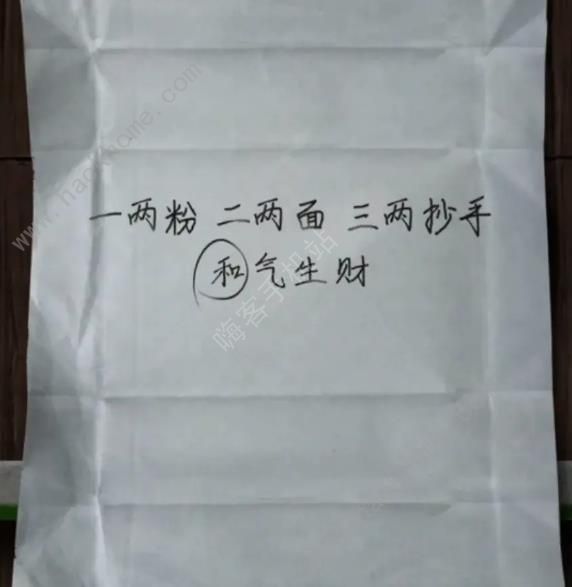 一两粉 二两面 三两抄手
和气生财
www.hackhome.com
嗨客手机站